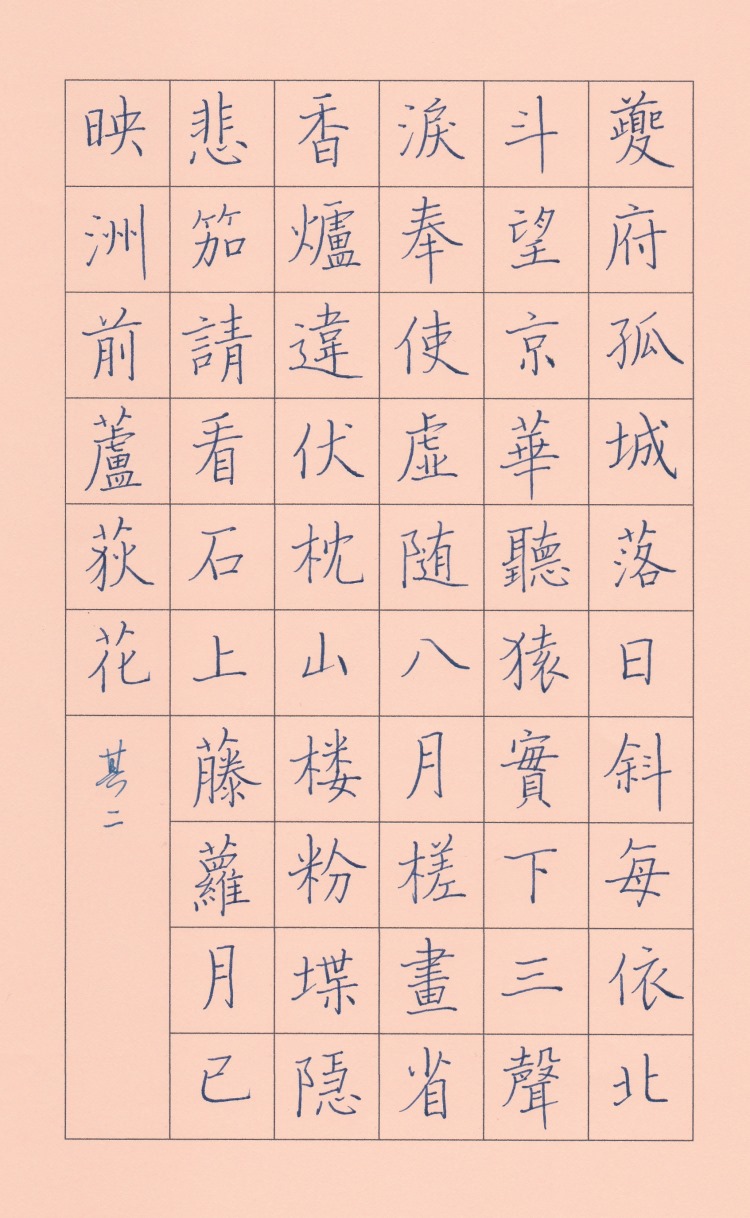 夔府孤城落日斜每依北
斗望京華聽猿實下三聲
淚奉使虛随八月槎畫省
香爐違伏枕山楼粉堞隠
悲笳請看石上藤蘿月已
映洲前蘆荻花
其二